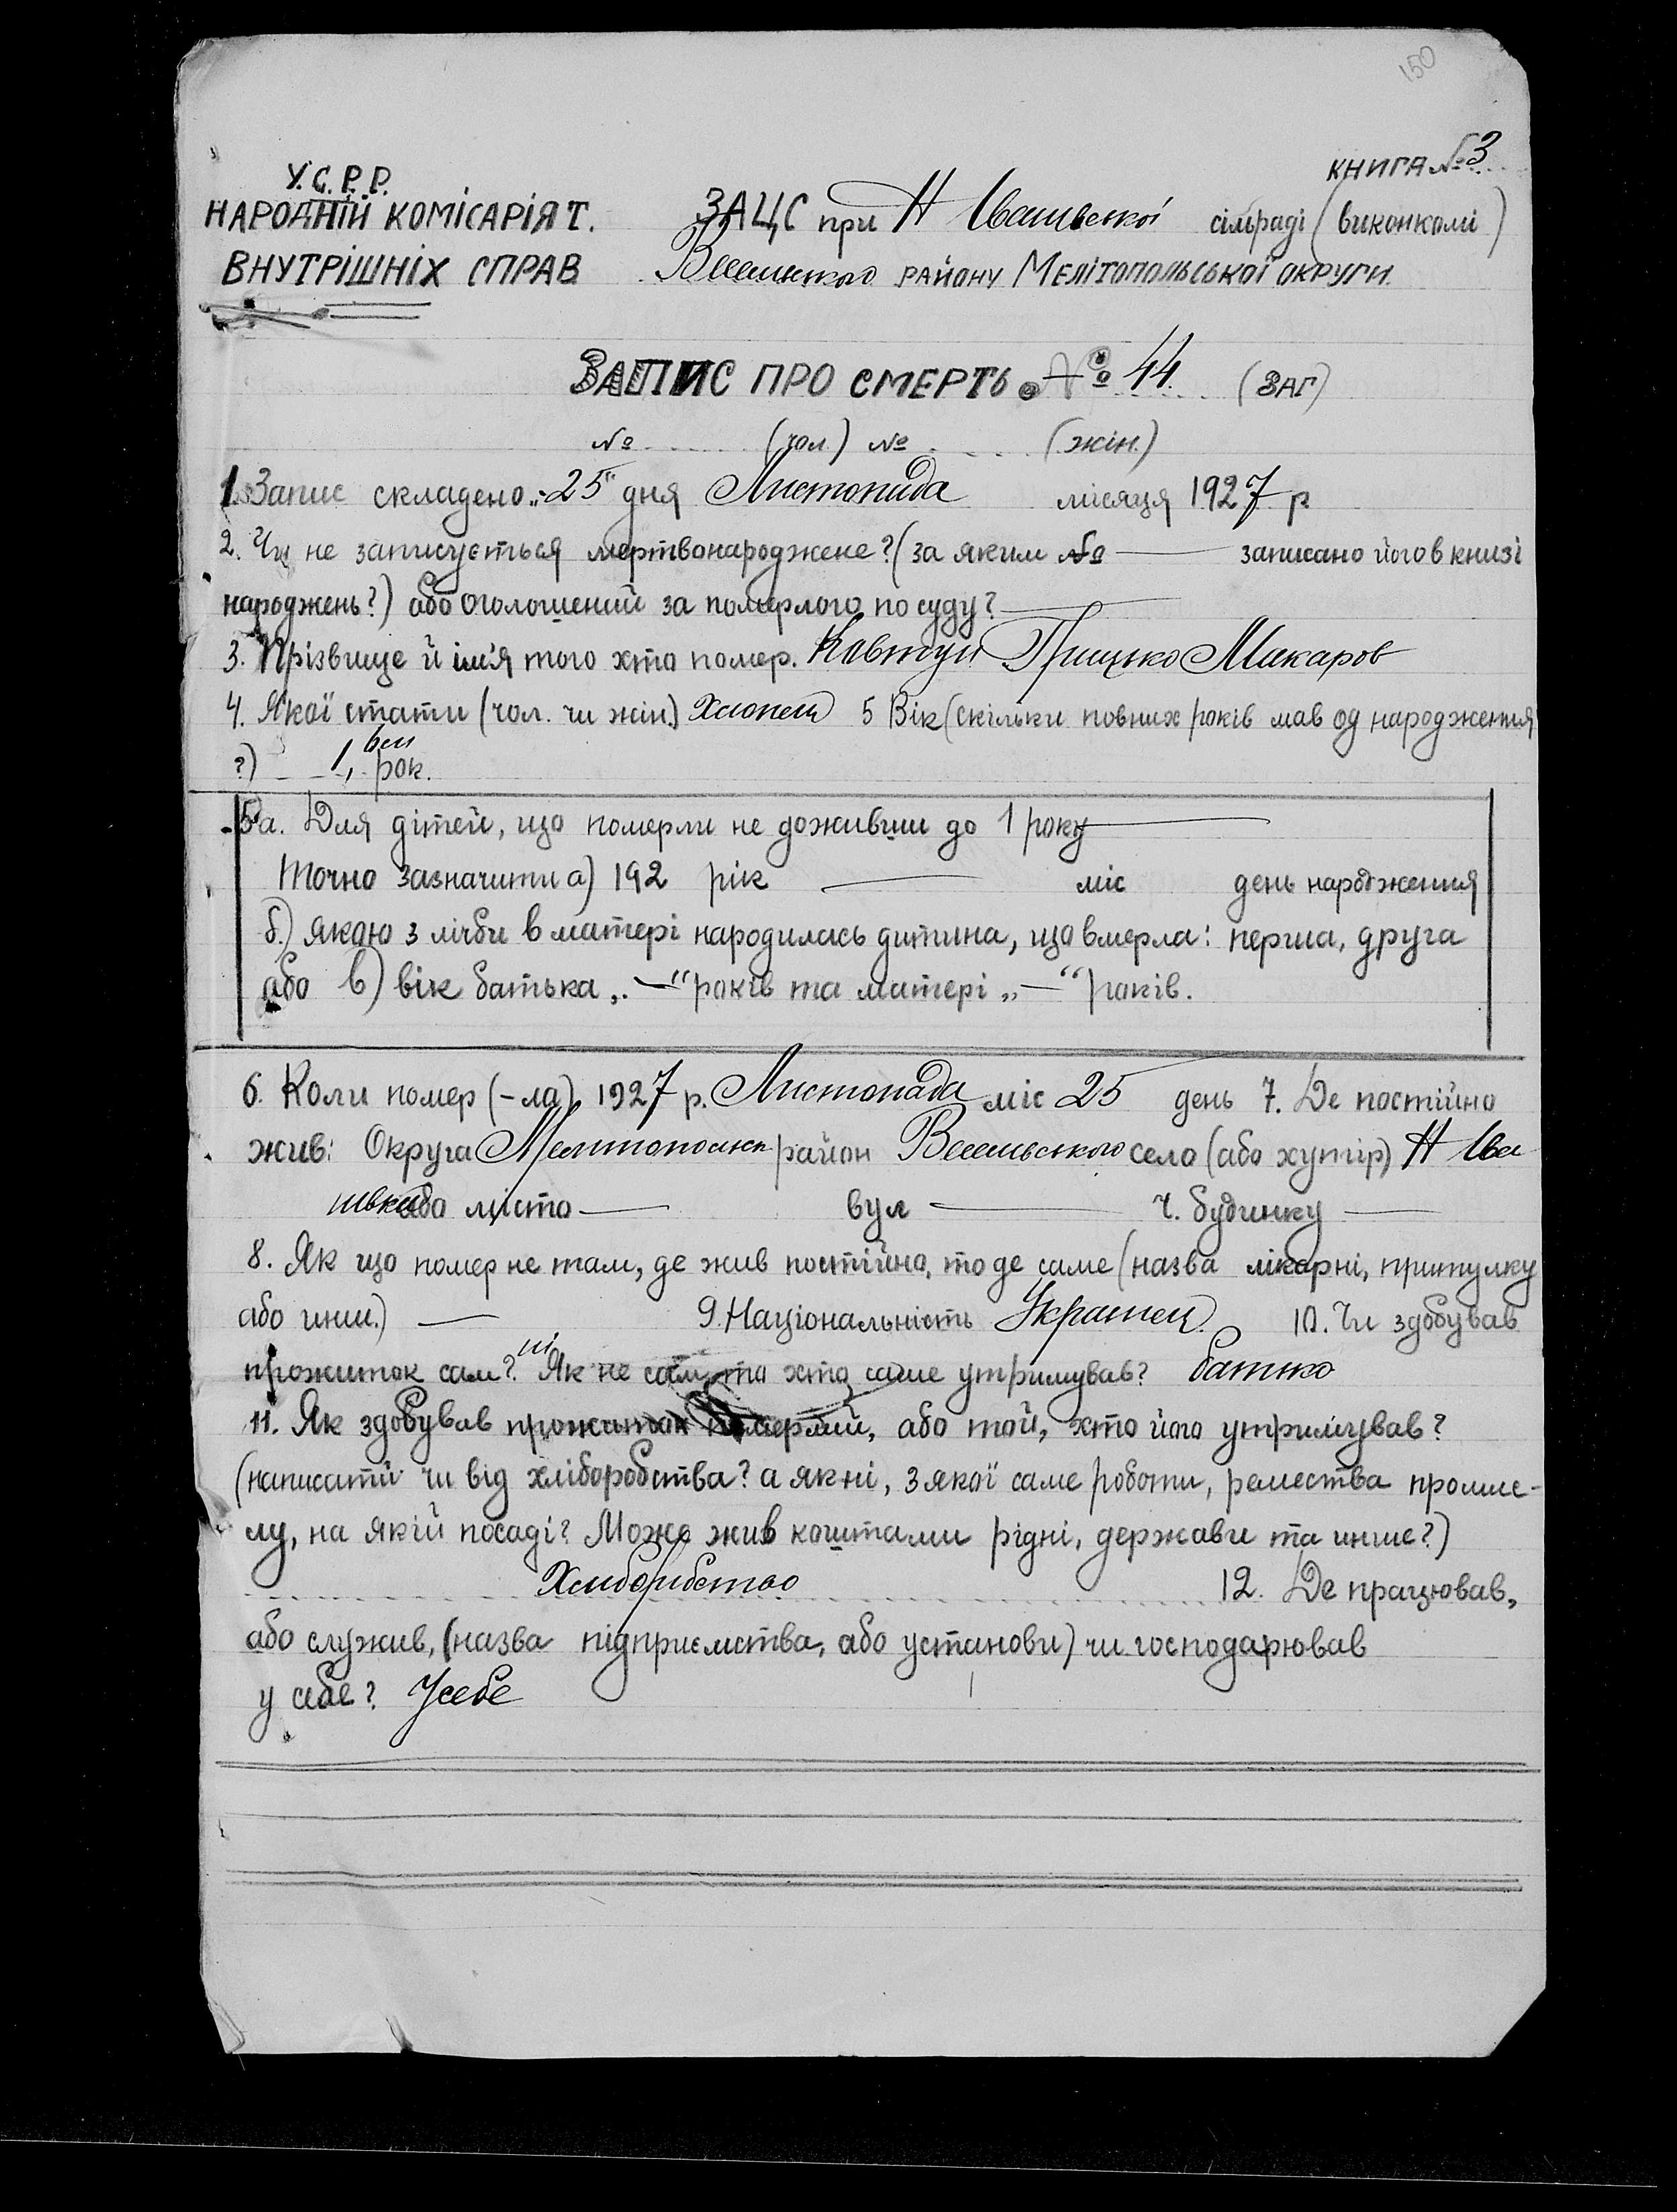 150
КНИГА № 3
У.С.Р.Р.
НАРОДНІЙ КОМІСАРІЯТ. ЗАЦС при Н Івашвської сільраді (виконкомі)
ВНУТРІШНІХ СПРАВ Веселівського РАЙОНУ МЕЛІТОПОЛЬСЬКОЇ ОКРУГИ.
ЗАПИС ПРО СМЕРТЬ № 44. (ЗАГ)
№ (чол.) № (жін.)
1. Запис складено „25" дня Листопада місяця 1927 р.
2. Чи не записується мертвонароджене? (за яким № — записано його в книзі
народжень?) або оголошений за померлого по суду? —
3. Прізвище й ім'я того хто помер. Ковтун Грицько Макаров
4. Якої стати (чол. чи жін.) Хлопець 5 Вік (скільки повних років мав од народження
?) 1, рок.
5а. Для дітей, що померли не доживши до 1 року —
точно зазначити а) 192 рік — міс день народження
б.) якою з лічби в матері народилась дитина, що вмерла: перша, друга
або в) вік батька „—" років та матері „—" років.
6. Коли помер (-ла) 1927 р. Листопада міс 25 день 7. Де постійно
жив: Округа Мелітопольск район Веселівського село (або хутір) Н Іва
швка або місто — вул — ч. будинку —
8. Як що помер не там, де жив постійно, то де саме (назва лікарні, притулку
або инш.) — 9. Національність Украінец. 10. Чи здобував
прожиток сам? ні Як не сам, то хто саме утримував? батько
11. Як здобував прожиток померлий, або той, хто його утримував?
(написати чи від хліборобства? а як ні, з якої саме роботи, ремества промис-
лу, на якій посаді? Може жив коштами рідні, держави та инше?)
Хліборобство 12. Де працював,
або служив, (назва підприємства, або установи) чи господарював
у себе? Усебе